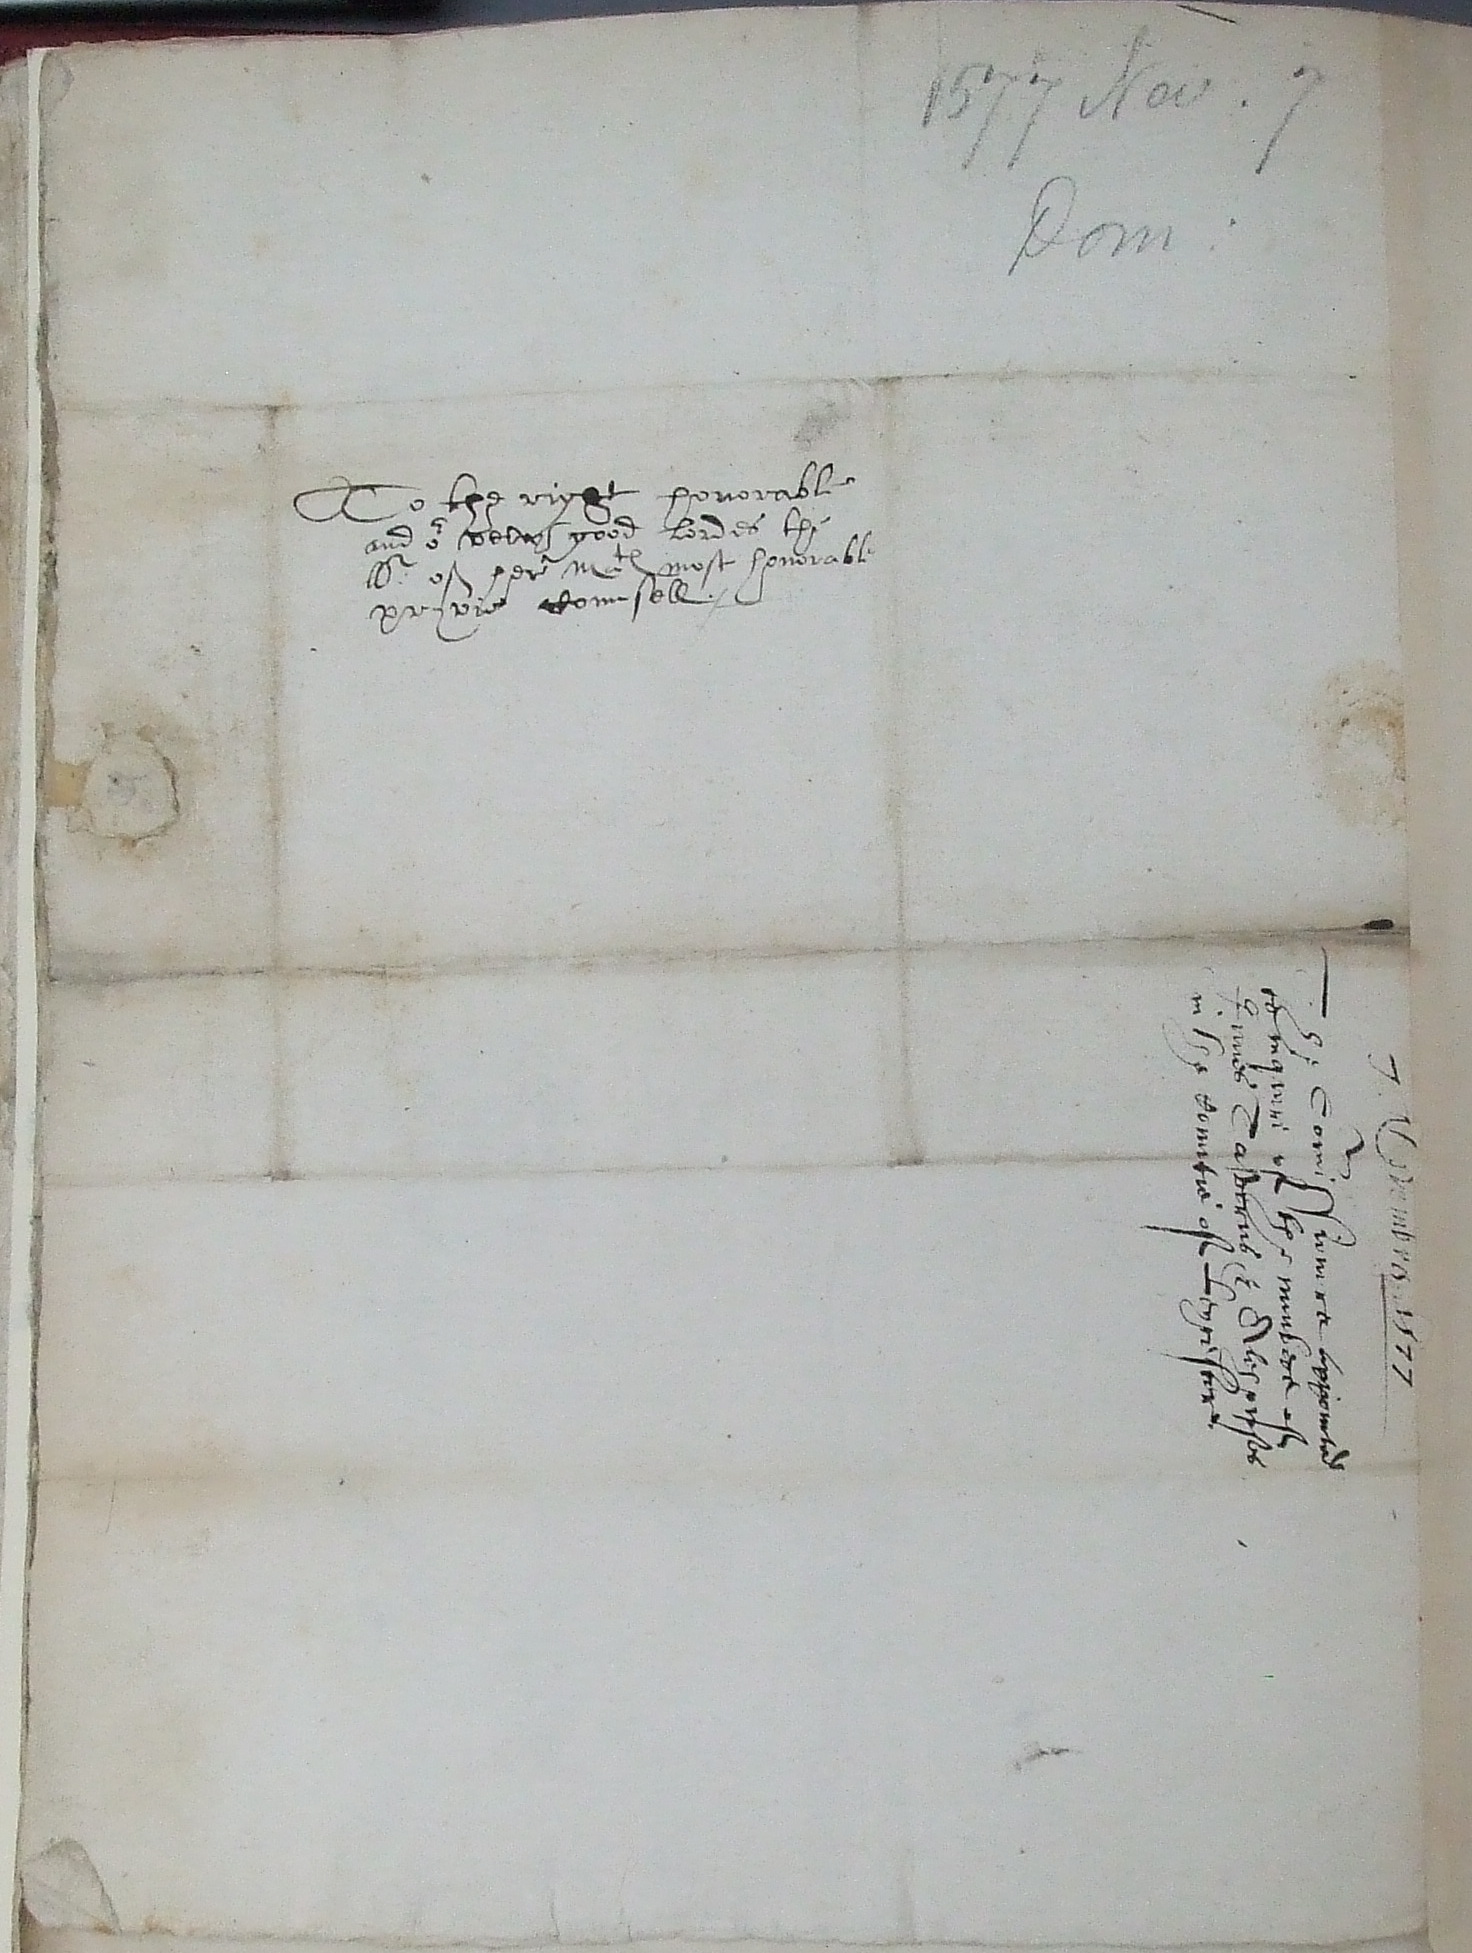 1577 Nov. 7
Dom:
To the right honorable
and or verey good Lordes the
ll: of her Matē most honorable
privie counsell.
7. Novembris. 1577
The Comissioners appointed
to inquire of the number of
Innes Tavernes & Alehowses
in the countie of Leycester.